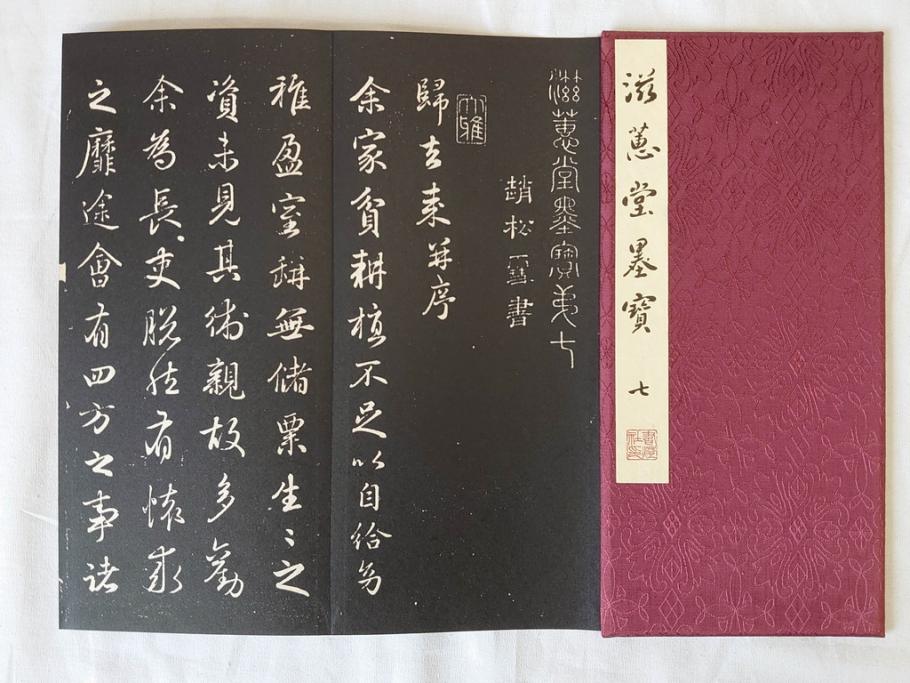 滋蕙堂墨寶 七
滋蕙堂墨寶弟七
趙松雪書
歸去来并序
余家貧耕植不足以自給幼
稚盈室缾無儲粟生〻之
資未見其術親故多勸
余為長吏脱然有懐求
之靡途會有四方之事諸